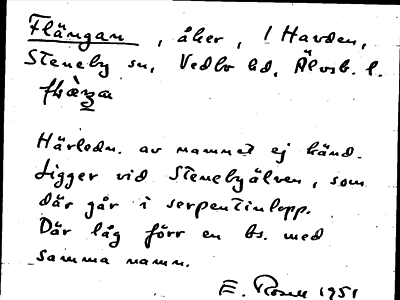 Flängan, åker, 1 Havden,
Steneby sn, Vedbo hd, Älvsb. l.
Härledn. av namnet ej känd.
Ligger vid Stenebyälven, som
där går i serpentinlopp.
Där låg förr en bs. med
samma namn.
E. 1951